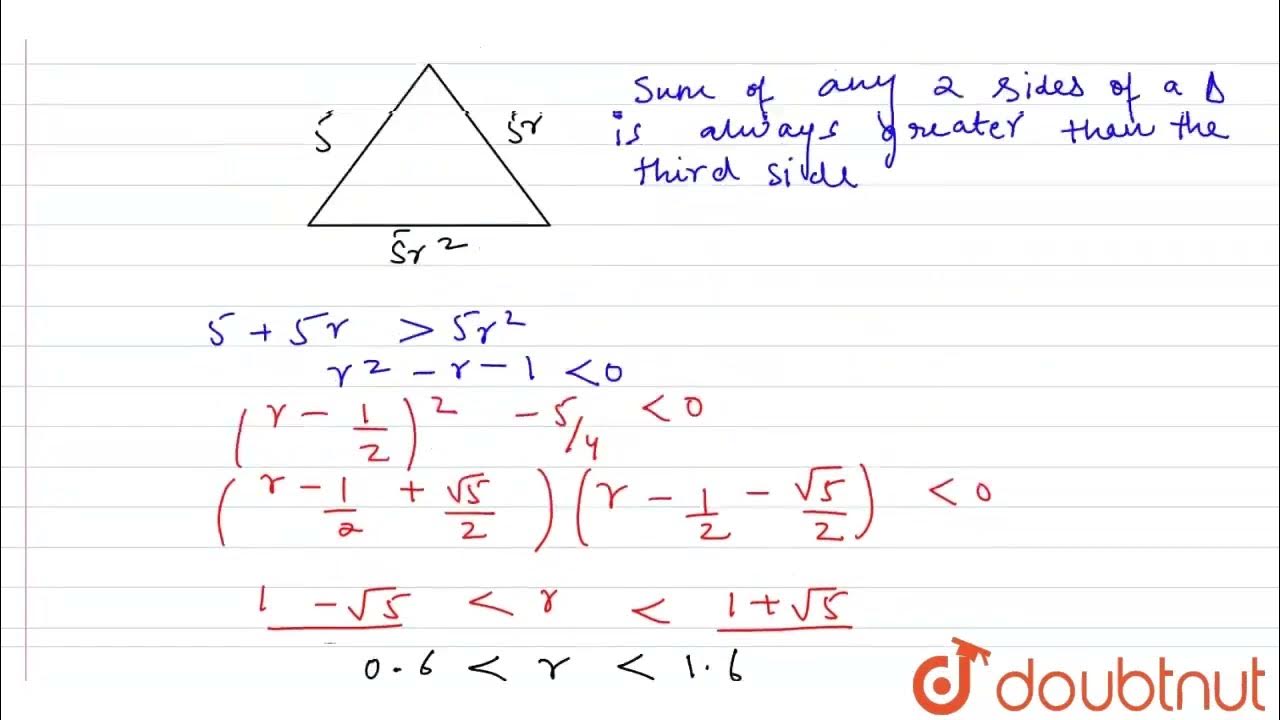 5
5r
5r²
Sum of any 2 sides of a Δ
is always greater than the
third side
5 + 5r > 5r²
r² - r - 1 < 0
(r - 1/2)² - 5/4 < 0
(r - 1/2 + √5/2)(r - 1/2 - √5/2) < 0
1 - √5 < r < 1 + √5
0.6 < r < 1.6
doubtnut